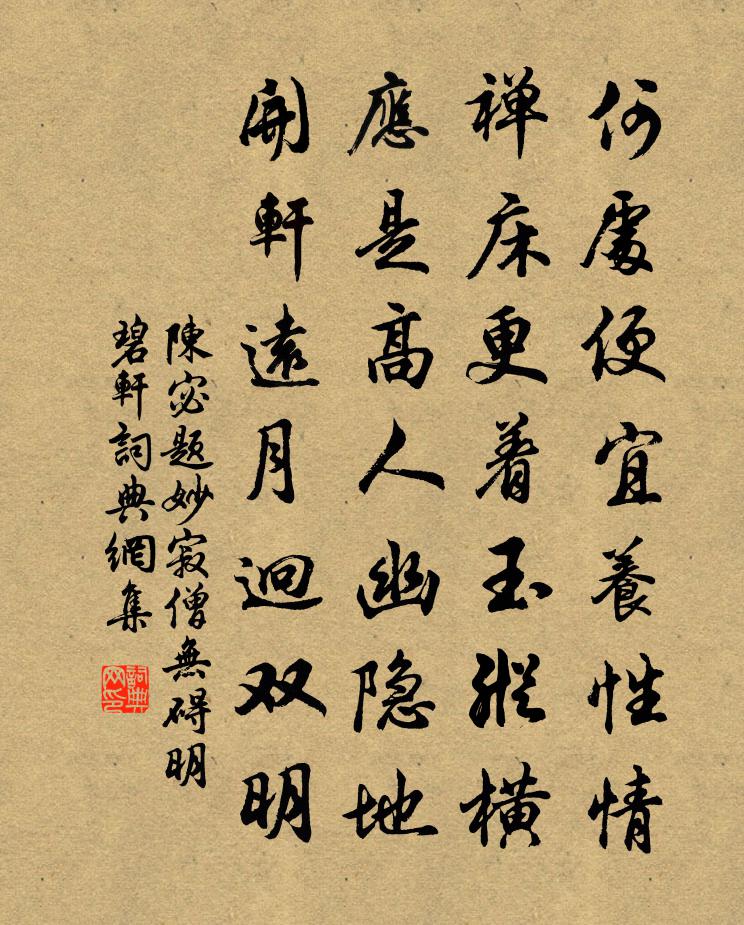 何處便宜養性情
禅床更着玉縱橫
應是高人幽隐地
開軒遠月迥双明
陳宓题妙寂僧無碍明
碧軒詞典網集
詞典网印